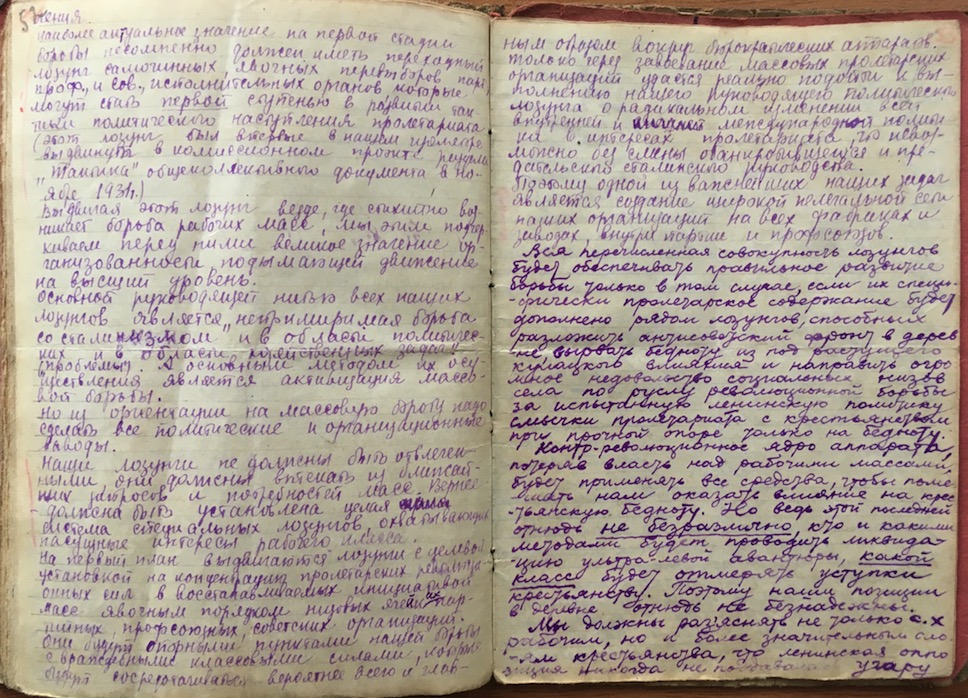 5
жения
наиболее актуальное значение на первой стадии
борьбы несомненно должен иметь переходный
лозунг самочинных, явочных перевыборов парт.
проф., и сов., исполнительных органов которые
могут стать первой ступенью в развитии так-
тики политического наступления пролетариата
(этот лозунг был впервые в нашем
выдвинут в комиссионном проекте
общеколлективного документа в но-
ябре 1932г.)
Выдвигая этот лозунг везде, где стихийно воз-
никает борьба рабочих масс, мы этим подчер-
киваем перед ними великое значение ор-
ганизованности подымающей движение
на высший уровень.
Основной руководящей нитью всех наших
лозунгов является непримиримая борьба
со сталинизмом и в области политичес-
ких и в области хозяйственных задач
(проблемы). А основным методом их осу-
ществления является активизация массо-
вой борьбы.
Но из ориентации на массовую борьбу надо
сделать все политические и организационные
выводы.
Наши лозунги не должны быть отвлечен-
ными, они должны вытекать из ближай-
ших запросов и потребностей масс. Вернее
должна быть установлена целая
система специальных лозунгов, охватывающих
насущные интересы рабочего класса.
На первый план выдвигаются лозунги с целевой
установкой на концентрацию пролетарских революци-
онных сил в восстанавливаемых инициативой
масс явочным порядком низовых ячейках пар-
тийных, профсоюзных, советских организаций.
Они будут опорными пунктами нашей борьбы
с враждебными классовыми силами, которые
будут сосредотачиваться вероятнее всего и глав-
ным образом вокруг бюрократических аппаратов.
Только через завоевание массовых пролетарских
организаций удастся реально подойти к вы-
полнению нашего руководящего политического
лозунга о радикальном изменении всей
внутренней и международной полити-
ки в интересах пролетариата что невоз-
можно без смены обанкротившегося и пре-
дательского сталинского руководства.
Поэтому одной из важнейших наших задач
является создание широкой нелегальной сети
наших организаций на всех фабрицах и
заводах, внутри партии и профсоюзов.
Вся перечисленная совокупность лозунгов
будет обеспечивать правильное развитие
борьбы только в том случае, если их специ-
фически пролетарское содержание будет
дополнено рядом лозунгов, способных
разложить антисоветский фронт в дерев-
не, вырвать бедноту из под растущего
кулацкого влияния и направить огро-
мное недовольство социальных низов
села по руслу революционной борьбы
за испытанную ленинскую политику
смычки пролетариата с крестьянством
при прочной опоре только на бедноту.
Контр-революционное ядро аппарата,
потеряв власть над рабочими массами,
будет применять все средства, чтобы поме-
шать нам оказать влияние на крес-
тьянскую бедноту. Но ведь этой последней
отнюдь не безразлично, кто и какими
методами будет проводить ликвида-
цию ультра-левой авантюры, какой
класс будет отмерять уступки
крестьянству. Поэтому наши позиции
в деревне отнюдь не безнадежны.
Мы должны разъяснять не только с.х
рабочим, но и более значительным сло-
ям крестьянства, что ленинская оппо
зиция никогда не поддавалась угару